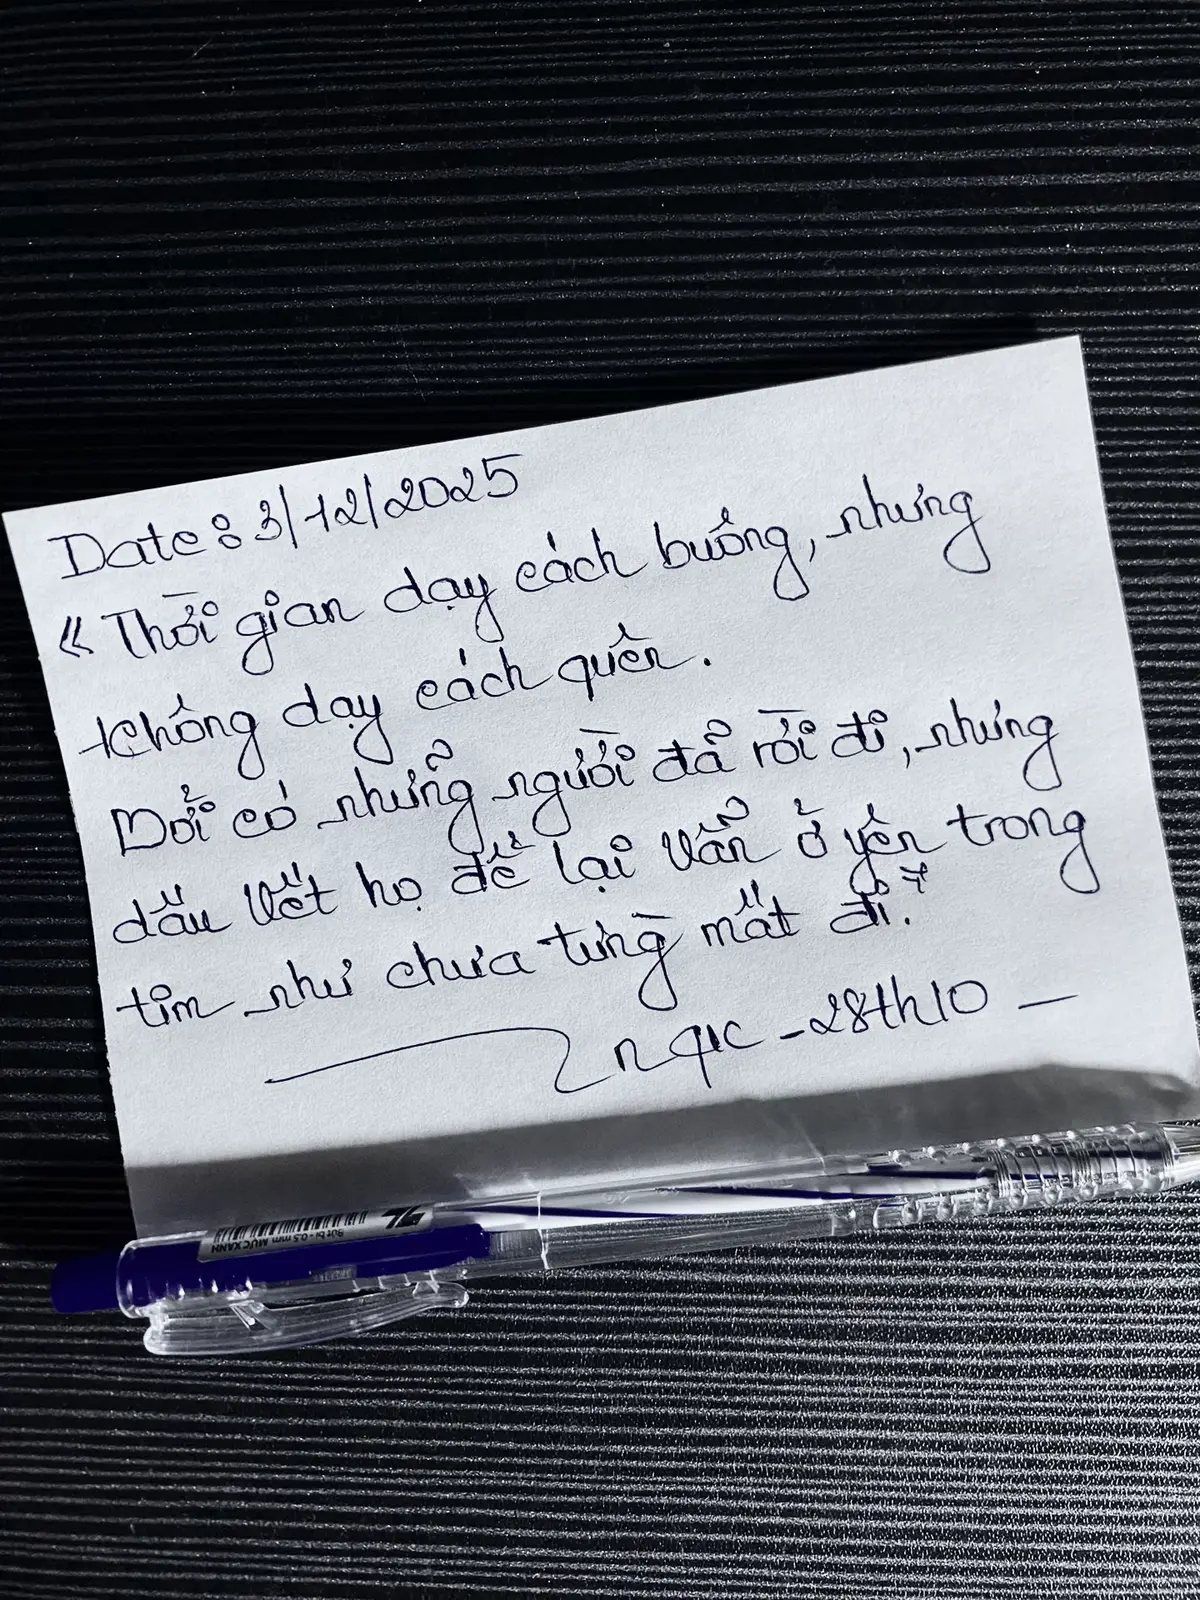 Date: 3/12/2025
"Thời gian dạy cách buông, nhưng
không dạy cách quên.
Bởi có những người đã rời đi, nhưng
dấu vết họ để lại vẫn ở yên trong
tim như chưa từng mất đi."
28th10 —
Bút bi - 0.5 mm MỰC XANH